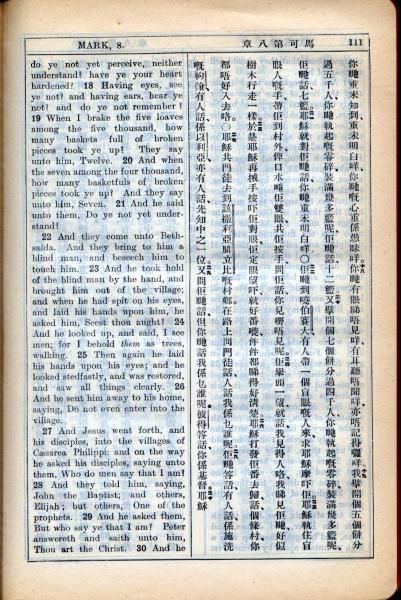 MARK, 8.
馬可第八章
111
do ye not yet perceive, neither
understand? have ye your heart
hardened? 18 Having eyes, see
ye not? and having ears, hear ye
not? and do ye not remember?
19 When I brake the five loaves
among the five thousand, how
many baskets full of broken
pieces took ye up? They say
unto him, Twelve. 20 And when
the seven among the four thousand,
how many basketfuls of broken
pieces took ye up? And they say
unto him, Seven. 21 And he said
unto them, Do ye not yet under-
stand?
22 And they come unto Beth-
saida. And they bring to him a
blind man, and beseech him to
touch him. 23 And he took hold
of the blind man by the hand, and
brought him out of the village;
and when he had spit on his eyes,
and laid his hands upon him, he
asked him, Seest thou aught? 24
And he looked up, and said, I see
men; for I behold them as trees,
walking. 25 Then again he laid
his hands upon his eyes; and he
looked stedfastly, and was restored,
and saw all things clearly. 26
And he sent him away to his home,
saying, Do not even enter into the
village.
27 And Jesus went forth, and
his disciples, into the villages of
Cæsarea Philippi: and on the way
he asked his disciples, saying unto
them, Who do men say that I am?
28 And they told him, saying,
John the Baptist; and others,
Elijah; but others, One of the
prophets. 29 And he asked them,
But who say ye that I am? Peter
answereth and saith unto him,
Thou art the Christ. 30 And he
你哋重未知到重未明白咩你哋嘅心重係愚昧咩你有眼睇唔見咩有耳聽唔聞咩亦唔記得囉咩我擘開個五個餅分
過五千人你哋執起嘅零碎裝滿幾多籃呢佢哋話十二籃又擘開個七個餅分過四千人你哋執起嘅零碎裝滿幾多籃呢
佢哋話七籃耶穌就對佢哋話你哋重未明白咩○佢哋到伯賽大有人帶一個盲眼嘅人來求耶穌摩吓佢耶穌執住盲
眼人嘅手帶佢到村外俾口水唾佢雙眼共佢按手問佢話你見嘢唔見呢佢舉頭一望就話我見得人咯我睇見佢哋好似
樹木行走一樣於是耶穌再手按吓佢對眼佢定眼望吓就好番件件都睇得好清楚耶穌打發佢番去歸話個條村你
都唔好入去咯○耶穌共門徒去到該撒利亞腓立比嘅村鄉在路上問門徒話人話我係乜誰呢佢哋答話有人話係施洗
嘅約翰有人話係以利亞亦有人話先知中之一位又問佢哋話但你哋話我係乜誰呢彼得答話你係基督耶穌